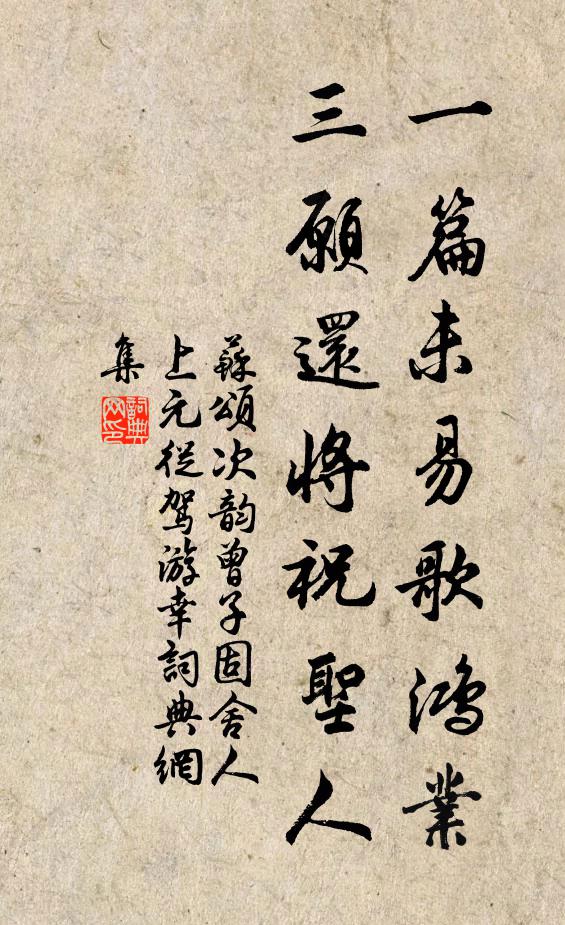 一篇未易歌鴻業
三願還將祝聖人
蘇頌次韵曾子固舍人
上元從駕游幸詞典網
集
詞典网印